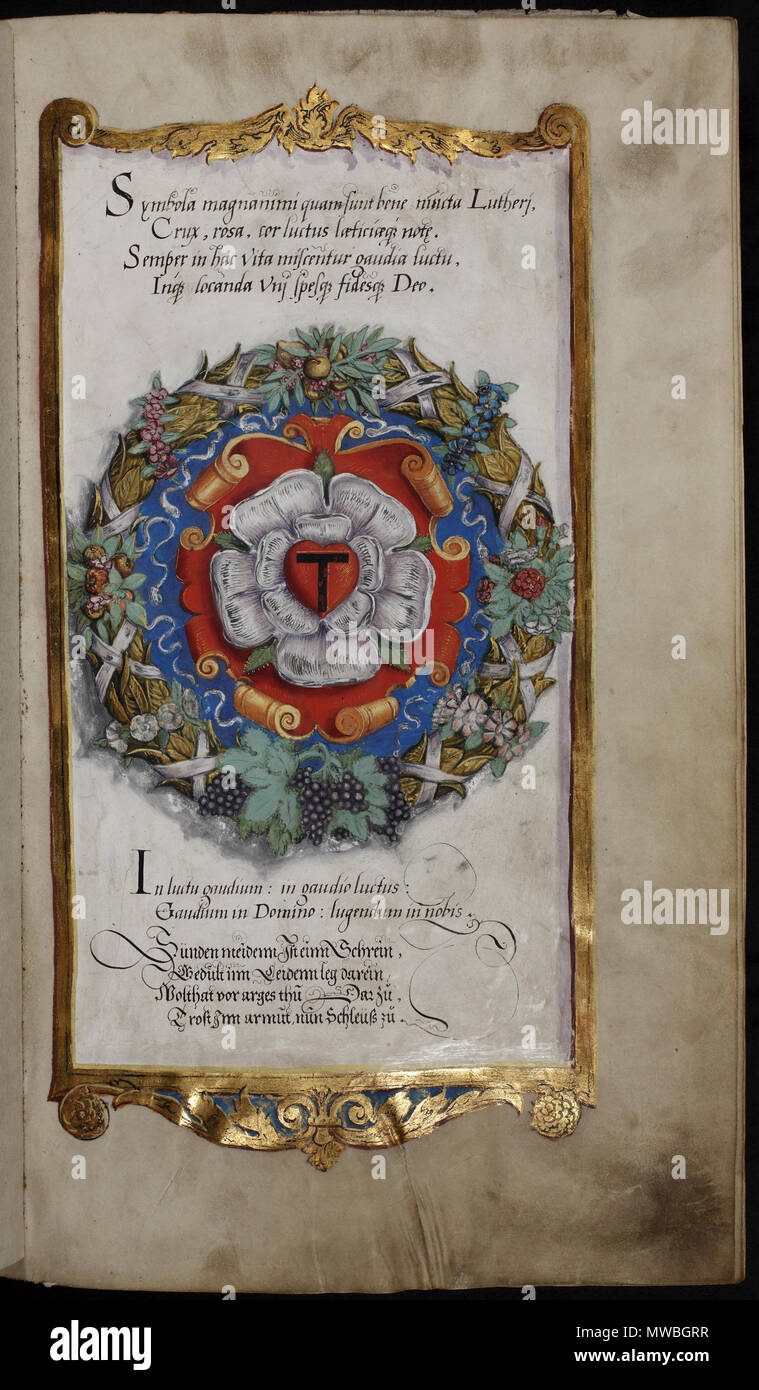 Symbola magnanimi quam sunt bene iuncta Lutheri,
Crux, rosa, cor luctus læticiæq; notę.
Semper in hac vita miscentur gaudia luctu,
Inq; locanda vnj spesq; fidesq; Deo.
T
In luctu gaudium: in gaudio luctus:
Gaudium in Domino: lugendum in nobis.
Sünden meidenn Ist einn Schrein,
Gedult inn Leidenn leg darein,
Wolthat vor arges thů Dar zů,
Trost Inn armut, nůn Schleuß zů.
a
alamy
a
a
alamy
a
alamy
Image ID: MWBGRR
www.alamy.com